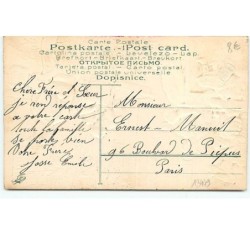 Carte Postale
Postkarte - Post card.
Cartolina postale - Levelező-Lap.
Brefkort - Briefkaart - Brevkort
ОТКРЫТОЕ ПИСЬМО
Tarjeta postal - Cartão postal
Union postale universelle
Dopisnice.
Chere Frère et Sœur
je vous réponse
a votre carte
toute la famille
se porte bien
Votre Frère
Josse Emile
Monsieur
Ernest
96 Boulevard de Picpus
Paris